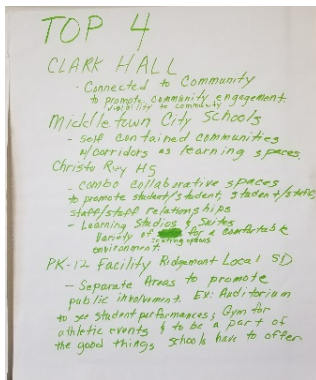 TOP 4
CLARK HALL
· Connected to Community
to promote community engagement.
visibility to community
Middletown City Schools
- self contained communities
w/corridors as learning spaces.
Christo Rey HS
- combo collaborative spaces
to promote student/student, student/staff,
staff/staff relationships
- Learning Studios & Suites
Variety of for a comfortable
seating options
environment.
PK-12 Facility Ridgemont Local SD
- Separate Areas to promote
public involvement. Ex: Auditorium
to see student performances; Gym for
athletic events & to be a part of
the good things schools have to offer